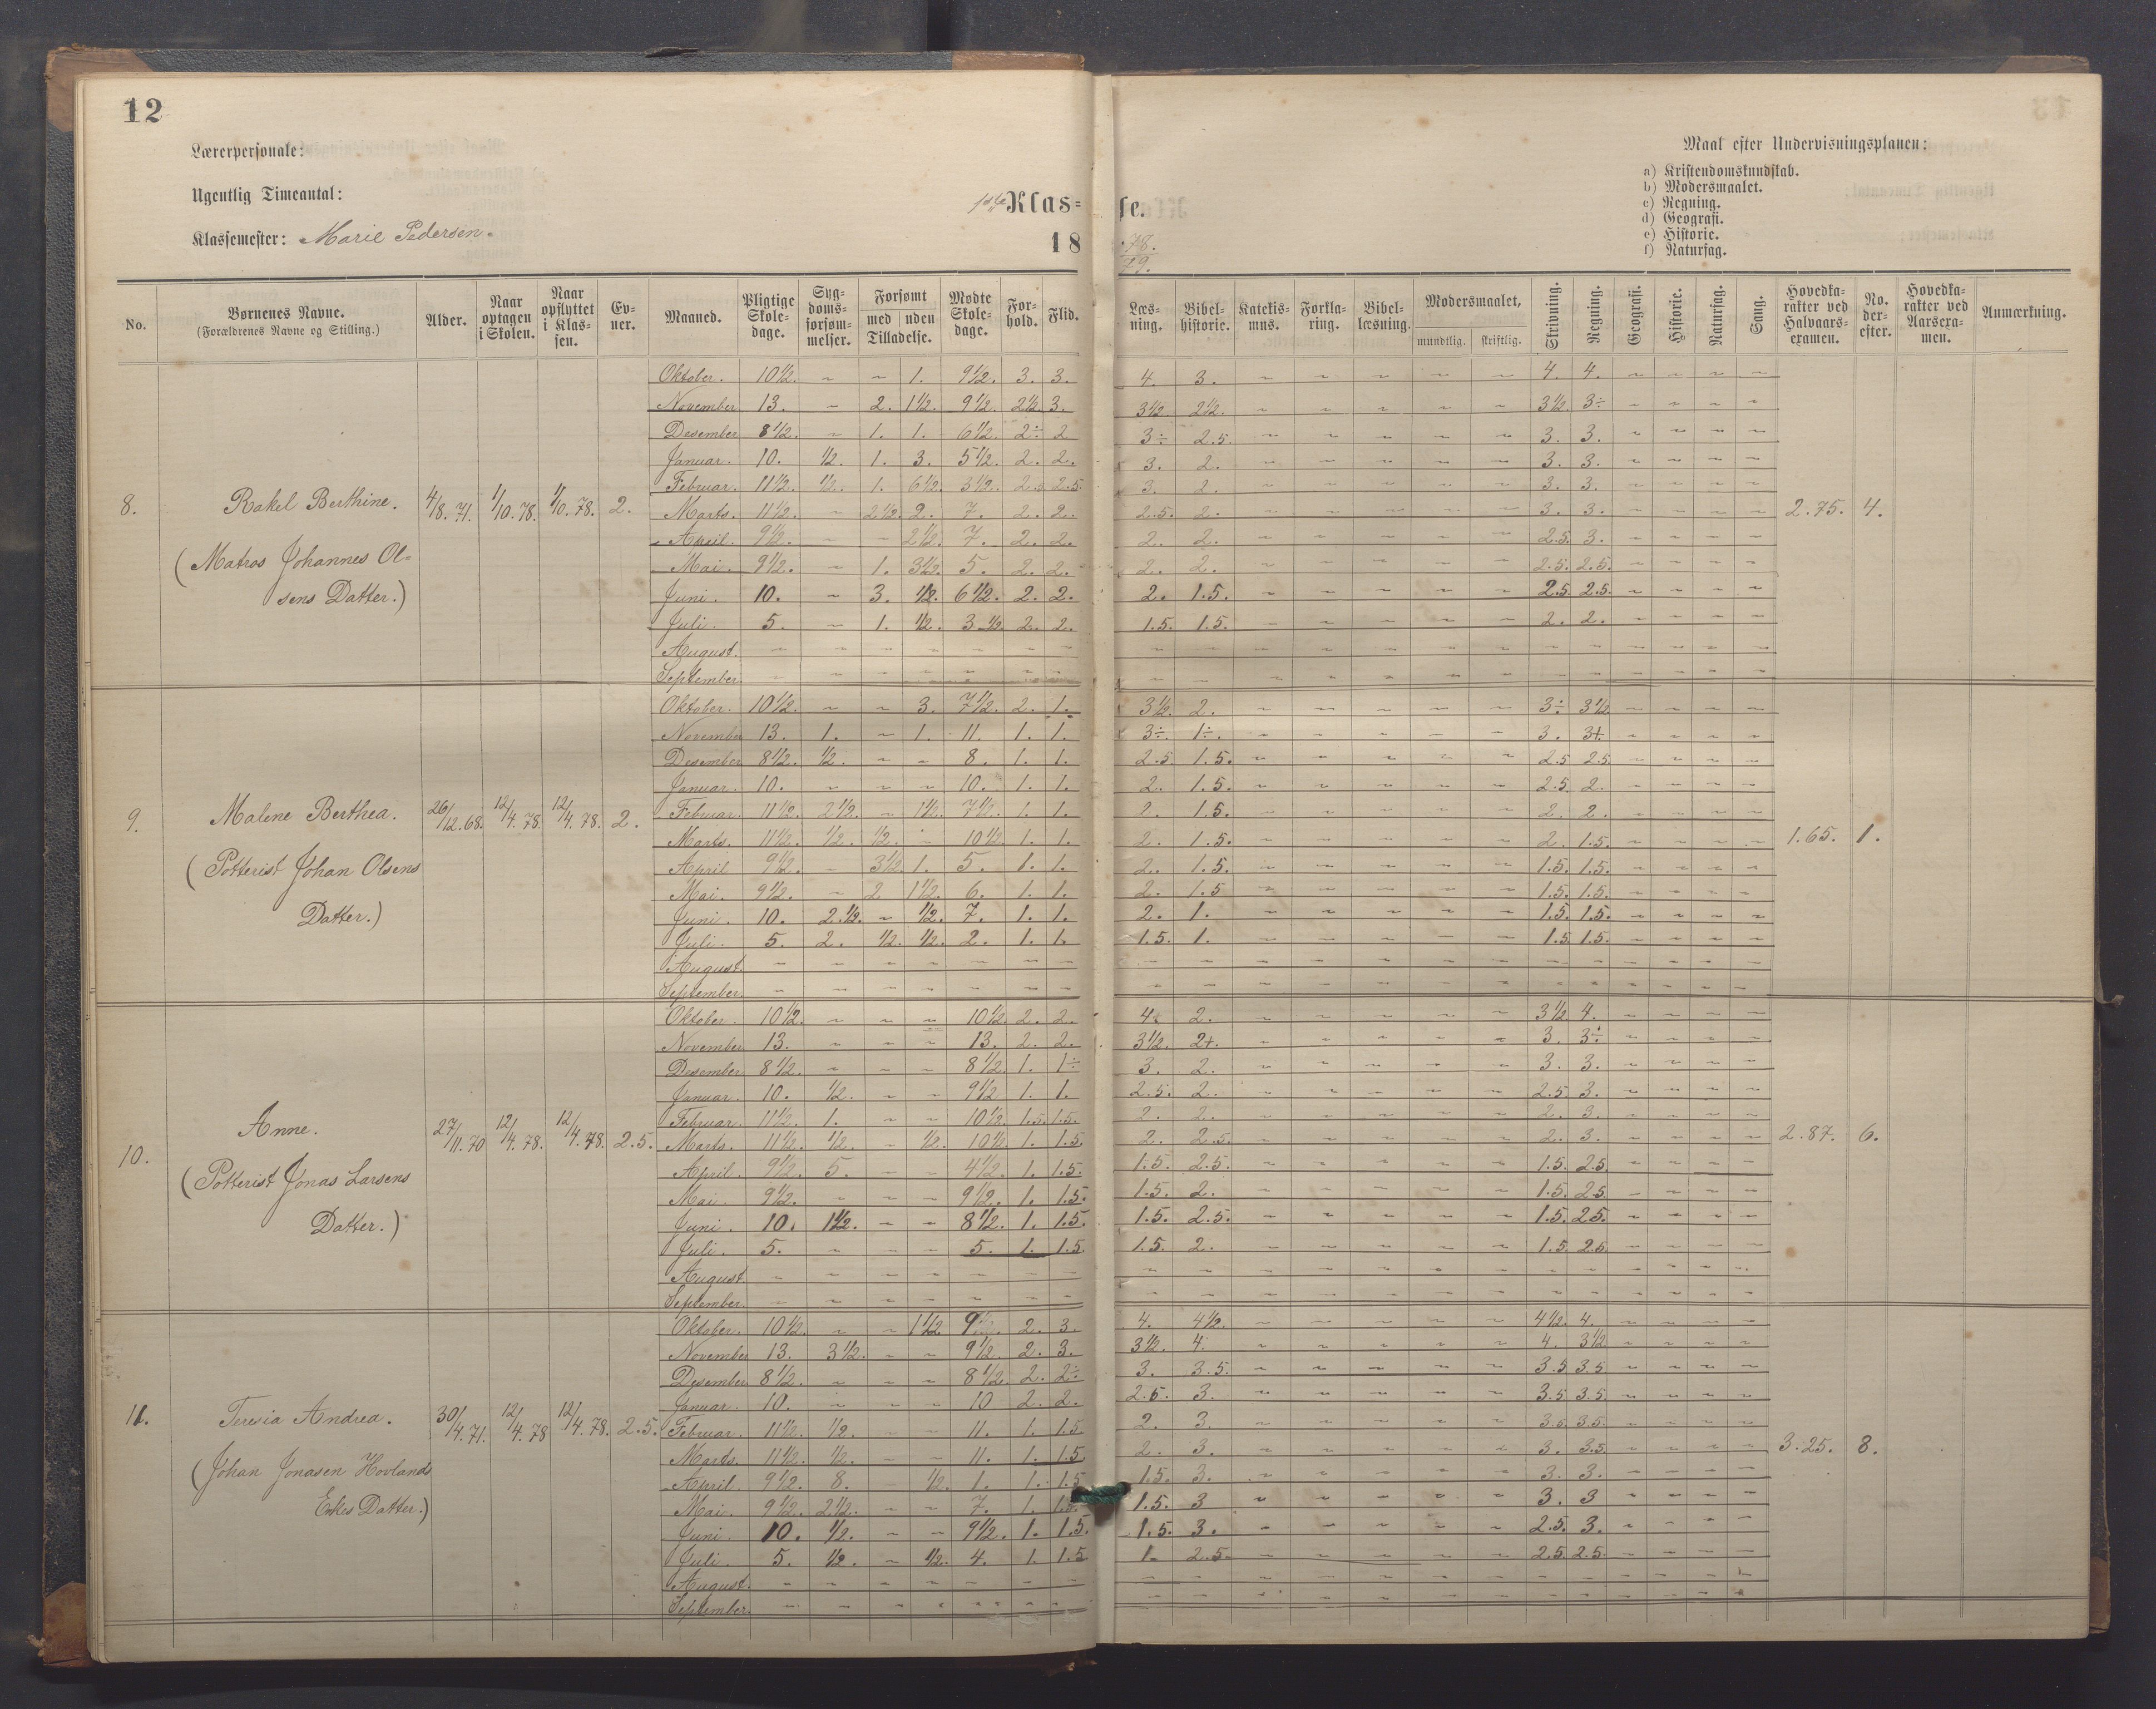 12
Lærerpersonale:
Ugentlig Timeantal:
Klassemester: Marie Pedersen.
1ste Klas= se.
18 78. 79.
Maal efter Undervisningsplanen:
a) Kristendomskundskab.
b) Modersmaalet.
c) Regning.
d) Geografi.
e) Historie.
f) Naturfag.
No. | Børnenes Navne. (Forældrenes Navne og Stilling.) | Alder. | Naar optagen i Skolen. | Naar opflyttet i Klassen. | Evner. | Maaned. | Pligtige Skoledage. | Sygdomsforsømmelser. | Forsømt med uden Tilladelse. | Mødte Skoledage. | Forhold. | Flid. | Læsning. | Bibelhistorie. | Katekismus. | Forklaring. | Bibellæsning. | Modersmaalet, mundtlig. skriftlig. | Skrivning. | Regning. | Geografi. | Historie. | Naturfag. | Sang. | Hovedkarakter ved Halvaarsexamen. | No. derefter. | Hovedkarakter ved Aarsexamen. | Anmærkning.
8. Rakel Berthine. 4/8. 71. 1/10. 78. 1/10. 78. 2. 2.75. 4.
(Matros Johannes Ol=
sens Datter.)
Oktober. 10 1/2. ~ ~ 1. 9 1/2. 3. 3. 4. 3. ~ ~ ~ ~ ~ 4. 4. ~ ~ ~ ~
November 13. ~ 2. 1 1/2. 9 1/2. 2 1/2. 3. 3 1/2. 2 1/2. ~ ~ ~ ~ ~ 3 1/2. 3÷ ~ ~ ~ ~
Desember 8 1/2. ~ 1. 1. 6 1/2. 2÷ 2 3÷ 2.5. ~ ~ ~ ~ ~ 3. 3. ~ ~ ~ ~
Januar. 10. 1/2. 1. 3. 5 1/2. 2. 2. 3. 2. ~ ~ ~ ~ ~ 3. 3. ~ ~ ~ ~
Februar. 11 1/2. 1/2. 1. 6 1/2. 3 1/2. 2. 2.5. 3. 2. ~ ~ ~ ~ ~ 3. 3. ~ ~ ~ ~
Marts. 11 1/2. ~ 2 1/2. 2. 7. 2. 2. 2.5. 2. ~ ~ ~ ~ ~ 3. 3. ~ ~ ~ ~
April. 9 1/2. ~ ~ 2 1/2. 7. 2. 2. 2. 2. ~ ~ ~ ~ ~ 2.5. 3. ~ ~ ~ ~
Mai. 9 1/2. ~ 1. 3 1/2. 5. 2. 2. 2. 2. ~ ~ ~ ~ ~ 2.5. 2.5. ~ ~ ~ ~
Juni. 10. ~ 3. 1/2. 6 1/2. 2. 2. 2. 1.5. ~ ~ ~ ~ ~ 2.5. 2.5. ~ ~ ~ ~
Juli. 5. ~ 1. 1/2. 3 1/2. 2. 2. 1.5. 1.5. ~ ~ ~ ~ ~ 2. 2. ~ ~ ~ ~
August. ~
September. ~
9. Malene Berthea. 26/12. 68. 12/4. 78 12/4. 78. 2. 1.65. 1.
(Potterist Johan Olsens
Datter.)
Oktober. 10 1/2. ~ ~ 3. 7 1/2. 2. 1. 3 1/2. 2. ~ ~ ~ ~ ~ 3÷ 3 1/2 ~ ~ ~ ~
November 13. 1. ~ 1. 11. 1. 1. 3÷. 1÷. ~ ~ ~ ~ ~ 3. 3+. ~ ~ ~ ~
Desember 8 1/2. 1/2. ~ ~ 8. 1. 1. 2.5 1.5. ~ ~ ~ ~ ~ 2.5 2.5 ~ ~ ~ ~
Januar. 10. ~ ~ ~ 10. 1. 1. 2. 1.5. ~ ~ ~ ~ ~ 2.5. 2. ~ ~ ~ ~
Februar. 11 1/2. 2 1/2. ~ 1 1/2. 7 1/2. 1. 1. 2. 1.5. ~ ~ ~ ~ ~ 2. 2. ~ ~ ~ ~
Marts. 11 1/2. 1/2. 1/2. ~ 10 1/2. 1. 1. 2. 1.5. ~ ~ ~ ~ ~ 2. 1.5. ~ ~ ~ ~
April 9 1/2. ~ 3 1/2. 1. 5. 1. 1. 2. 1.5. ~ ~ ~ ~ ~ 1.5. 1.5. ~ ~ ~ ~
Mai. 9 1/2. ~ 2 1 1/2. 6. 1. 1. 2. 1.5 ~ ~ ~ ~ ~ 1.5. 1.5. ~ ~ ~ ~
Juni. 10. 2 1/2. ~ 1/2. 7. 1. 1. 2. 1. ~ ~ ~ ~ ~ 1.5. 1.5. ~ ~ ~ ~
Juli. 5. 2. 1/2. 1/2. 2. 1. 1. 1.5. 1. ~ ~ ~ ~ ~ 1.5 1.5. ~ ~ ~ ~
August. ~
September. ~
10. Anne. 27/11. 70 12/4. 78. 12/4. 78. 2.5. 2.87. 6.
(Potterist Jonas Larsens
Datter.)
Oktober. 10 1/2. ~ ~ ~ 10 1/2. 2. 2. 4. 2. ~ ~ ~ ~ ~ 3 1/2 4. ~ ~ ~ ~
November 13. ~ ~ ~ 13. 2. 2. 3 1/2. 2+. ~ ~ ~ ~ ~ 3. 3÷ ~ ~ ~ ~
Desember 8 1/2. ~ ~ ~ 8 1/2. 1. 1÷ 3. 2. ~ ~ ~ ~ ~ 3. 3. ~ ~ ~ ~
Januar. 10. 1/2. ~ ~ 9 1/2 1. 1. 2.5. 2. ~ ~ ~ ~ ~ 2.5. 3. ~ ~ ~ ~
Februar. 11 1/2. 1. ~ ~ 10 1/2 1.5. 1.5. 2. 2. ~ ~ ~ ~ ~ 2. 3. ~ ~ ~ ~
Marts. 11 1/2. 1/2. ~ 1/2. 10 1/2 1. 1.5 2. 2.5. ~ ~ ~ ~ ~ 2. 3. ~ ~ ~ ~
April. 9 1/2. 5. ~ ~ 4 1/2. 1. 1.5. 1.5. 2.5. ~ ~ ~ ~ ~ 1.5. 2.5 ~ ~ ~ ~
Mai. 9 1/2. ~ ~ ~ 9 1/2. 1. 1.5. 1.5. 2. ~ ~ ~ ~ ~ 1.5. 2.5. ~ ~ ~ ~
Juni. 10. 1 1/2. ~ ~ 8 1/2. 1. 1.5. 1.5. 2.5. ~ ~ ~ ~ ~ 1.5. 2.5. ~ ~ ~ ~
Juli. 5. ~ ~ ~ 5. 1. 1.5. 1.5. 2. ~ ~ ~ ~ ~ 1.5. 2.5 ~ ~ ~ ~
August. ~
September. ~
11. Teresia Andrea. 30/4. 71. 12/4. 78 12/4. 78. 2.5. 3.25. 8.
(Johan Jonasen Hovlands
Enkes Datter.)
Oktober. 10 1/2. ~ ~ 1 1/2. 9. 2. 3. 4. 4 1/2. ~ ~ ~ ~ ~ 4 1/2. 4. ~ ~ ~ ~
November 13. 3 1/2. ~ ~ 9 1/2. 2. 3. 3 1/2. 4. ~ ~ ~ ~ ~ 4. 3 1/2 ~ ~ ~ ~
Desember 8 1/2. ~ ~ ~ 8 1/2. 2. 2÷ 3. 3.5. ~ ~ ~ ~ ~ 3.5 3.5 ~ ~ ~ ~
Januar. 10. ~ ~ ~ 10 2. 2. 2.5. 3. ~ ~ ~ ~ ~ 3.5 3.5. ~ ~ ~ ~
Februar. 11 1/2. 1/2. ~ ~ 11. 1. 1.5 2. 3. ~ ~ ~ ~ ~ 3.5. 3.5. ~ ~ ~ ~
Marts. 11 1/2. 1/2. ~ ~ 11. 1. 1.5 2. 3. ~ ~ ~ ~ ~ 3. 3.5 ~ ~ ~ ~
April. 9 1/2. 8. ~ 1/2. 1. 1. 1.5 1.5. 3. ~ ~ ~ ~ ~ 3. 3. ~ ~ ~ ~
Mai. 9 1/2. 2 1/2. ~ ~ 7. 1. 1.5. 1.5. 3 ~ ~ ~ ~ ~ 3. 3 ~ ~ ~ ~
Juni. 10. 1/2. ~ ~ 9 1/2. 1. 1.5. 1.5. 3. ~ ~ ~ ~ ~ 2.5. 3. ~ ~ ~ ~
Juli. 5. 1/2. ~ 1/2. 4. 1. 1.5 1. 2.5. ~ ~ ~ ~ ~ 2.5 2.5. ~ ~ ~ ~
August. ~
September. ~